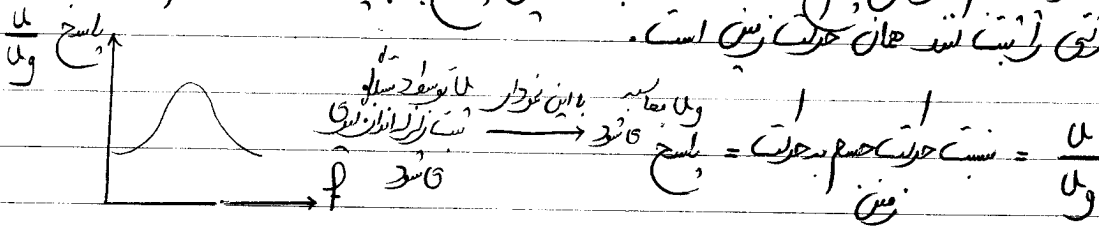 را ثبت کند همان حرکت زمین است.
پاسخ u/ug
u توسط دستگاه ثبت زلزله اندازه‌گیری می‌شود → با این نمودار ug محاسبه می‌شود
u/ug = نسبت حرکت جسم به حرکت زمین = پاسخ
f